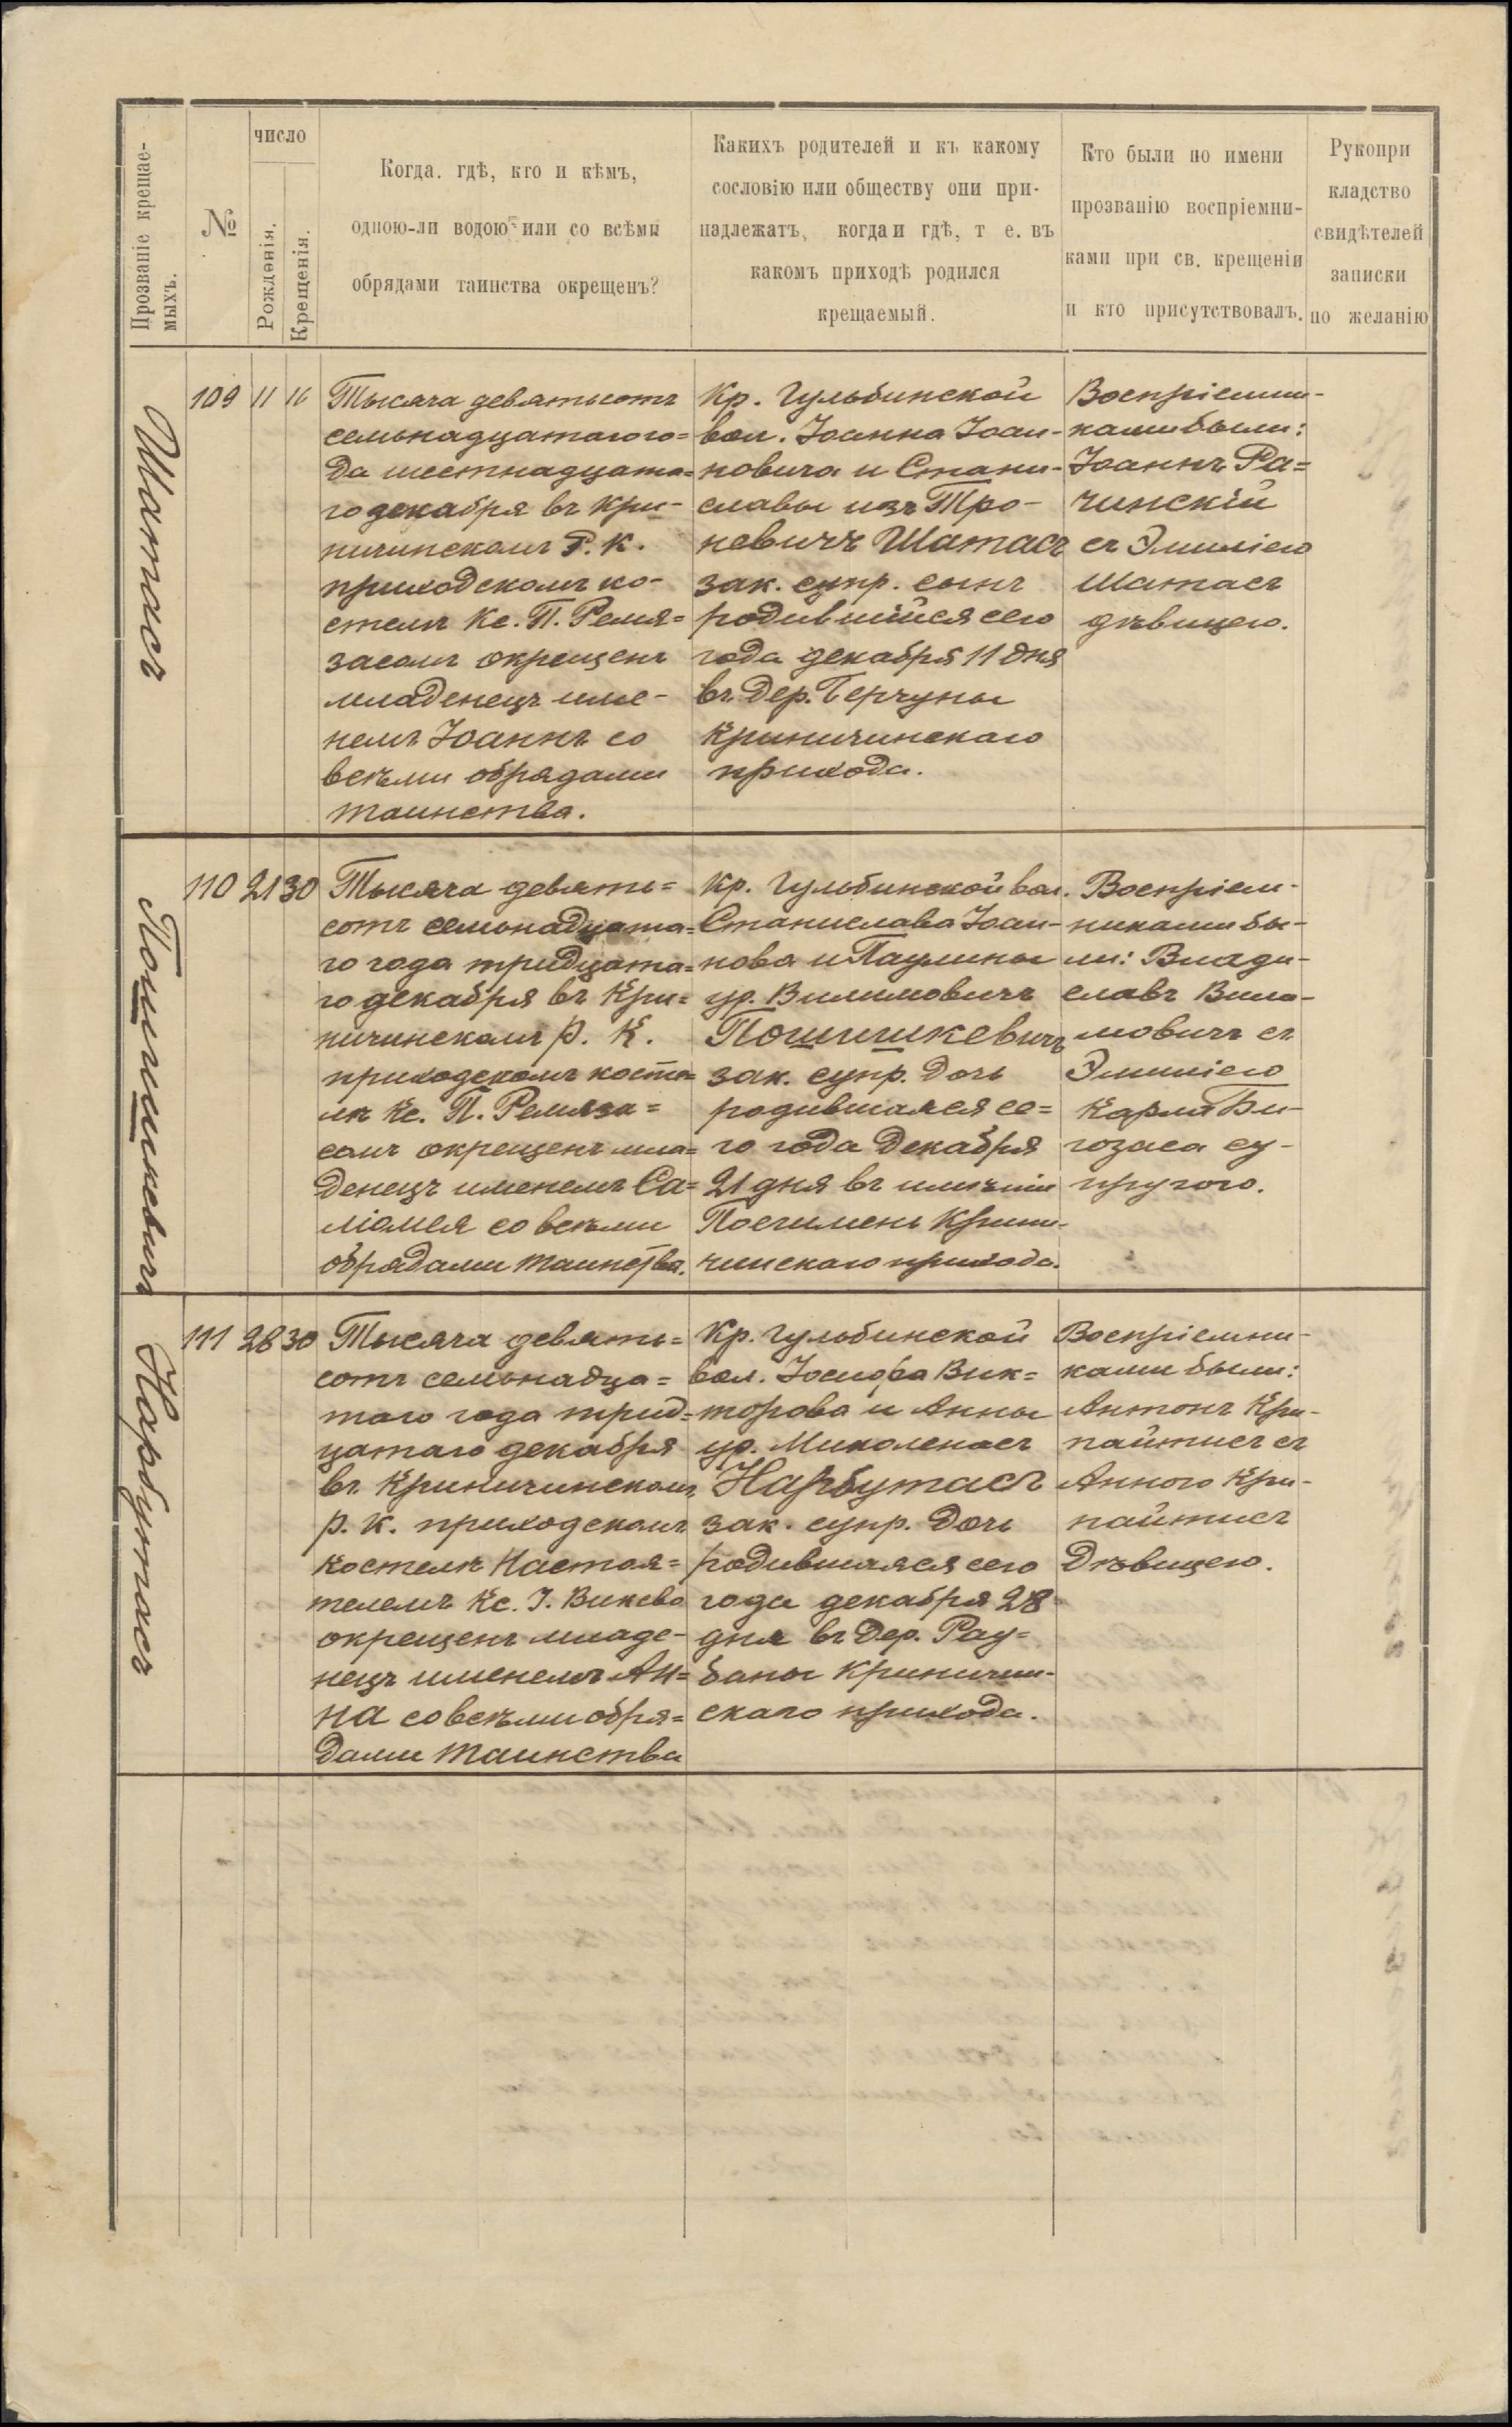 Прозваніе крещае-
мыхъ.
№
число
Рожденія.
Крещенія.
Когда. гдѣ, кто и кѣмъ,
одною-ли водою или со всѣми
обрядами таинства окрещенъ?
Какихъ родителей и къ какому
сословію или обществу они при-
надлежатъ, когда и гдѣ, т е. въ
какомъ приходѣ родился
крещаемый.
Кто были по имени
прозванію воспріемни-
ками при св. крещеніи
и кто присутствовалъ.
Рукопри
кладство
свидѣтелей
записки
по желанію
Шатасъ
109 11 16
Тысяча девятьсотъ
семьнадцатаго го=
да шестнадцата=
го декабря въ Кри-
ничинскомъ Р. К.
приходскомъ ко-
стелѣ Кс. П. Ремя=
засомъ окрещенъ
младенецъ име-
немъ Іоаннъ со
всѣми обрядами
таинства.
Кр. Гульбинской
вол. Іоанна Іоан-
новича и Стани-
славы изъ Тро-
невичъ Шатасъ
зак. супр. сынъ
родившійся сего
года декабря 11 дня
въ дер. Берчуны
Криничинскаго
прихода.
Воспріемни-
ками были:
Іоаннъ Ра=
чинскій
съ Эмиліею
Шатасъ
дѣвицею.
Пошишкевичъ
110 21 30
Тысяча девять=
сотъ семьнадцата=
го года тридцата=
го декабря въ Кри=
ничинскомъ Р. К.
приходскомъ косте=
лѣ Кс. П. Ремяза=
сомъ окрещенъ мла=
денецъ именемъ Са=
ломея со всѣми
обрядами таинства.
Кр. Гульбинской вол.
Станислава Іоан-
нова и Паулины
ур. Вилимовичъ
Пошишкевичъ
зак. супр. дочь
родившаяся се=
го года Декабря
21 дня въ имѣніи
Крини-
чинскаго прихода.
Воспріем-
никами бы-
ли: Влади-
славъ Вили-
мовичъ съ
Эмиліею
Карла Би-
гозаса су-
пругою.
Нарбутасъ
111 28 30
Тысяча девять=
сотъ семьнадца=
таго года трид=
цатаго декабря
въ Криничинскомъ
Р. К. приходскомъ
костелѣ Настоя=
телемъ Кс. І.
окрещенъ младе-
нецъ именемъ Ан=
на со всѣми обря=
дами таинства
Кр. Гульбинской
вол. Іосифа Вик=
торова и Анны
ур. Миколенасъ
Нарбутасъ
зак. супр. дочь
родившаяся сего
года декабря 28
дня въ дер. Рау=
баны Криничин-
скаго прихода.
Воспріемни-
ками были:
Антонъ Кри-
пайтисъ съ
Анною Кри-
пайтисъ
Дѣвицею.